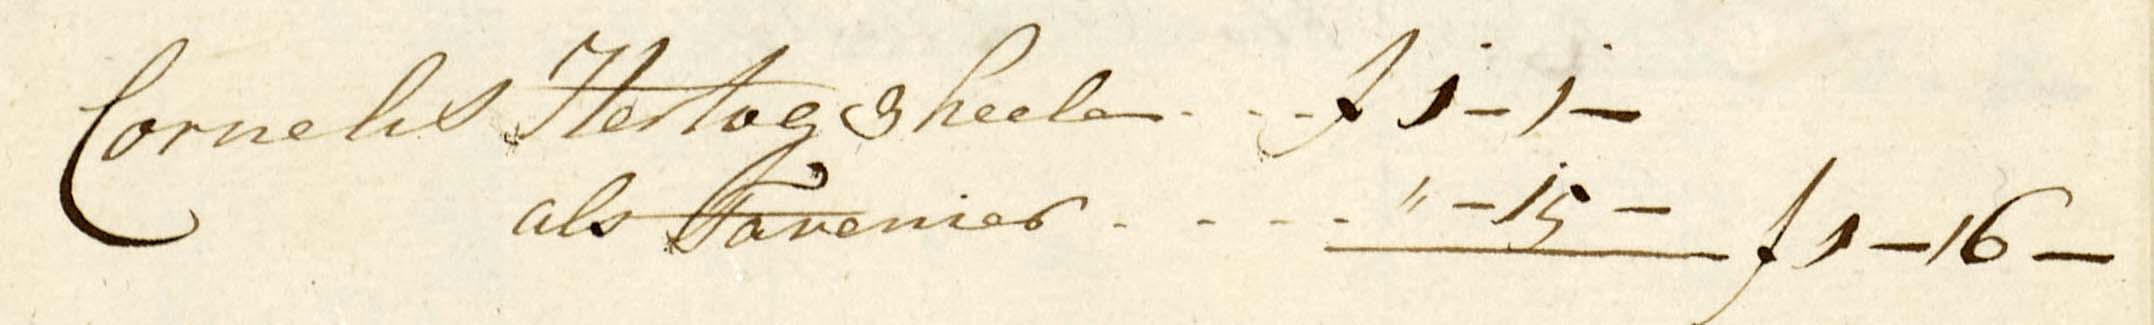 Cornelis Hertog 3 heele - - - ƒ 1 - 1 -
als Tavenier - - - - " - 15 - ƒ 1 - 16 -